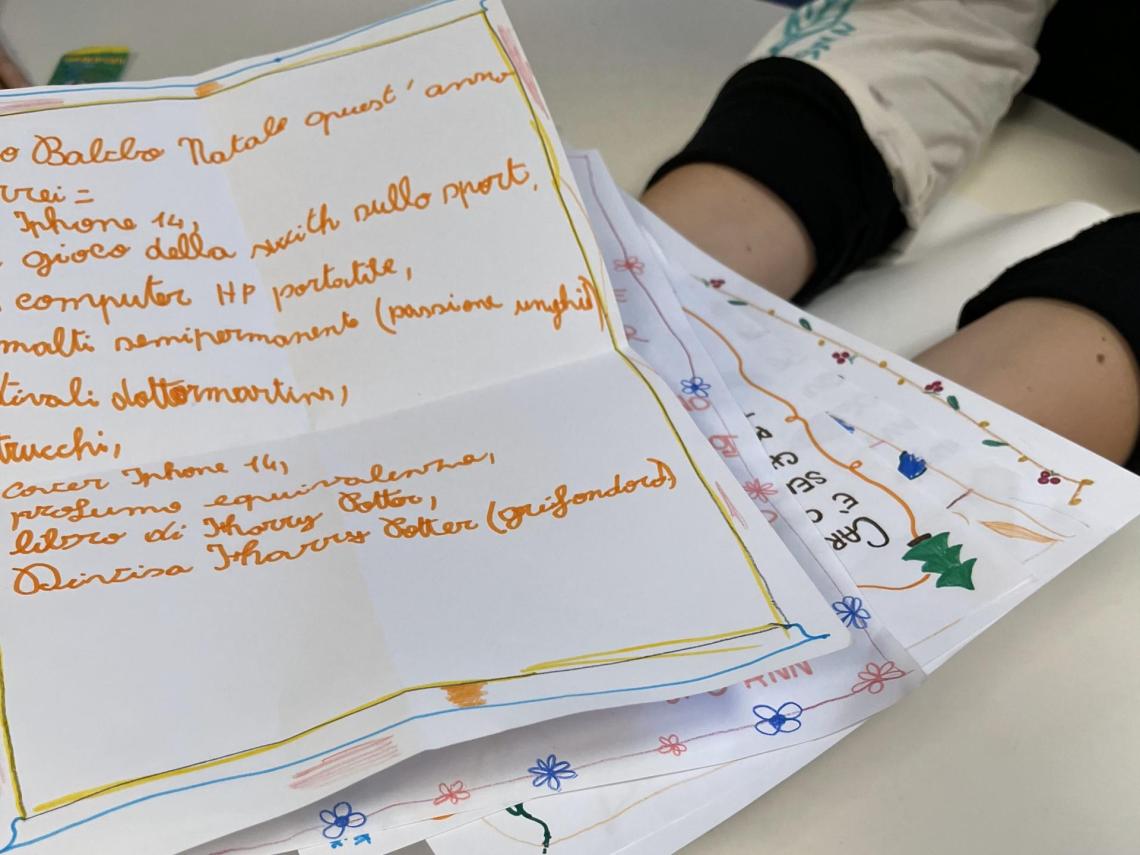 o Babbo Natale quest'anno
rrei =
Iphone 14,
gioco della swith sullo sport,
computer HP portatile,
malti semipermanente (passione unghie)
tivali dottormartins,
trucchi,
cover Iphone 14,
profumo equivalenza,
libro di Harry Potter,
Divisa Harry Potter (grifondoro)
CAR
È
SEI
ANN